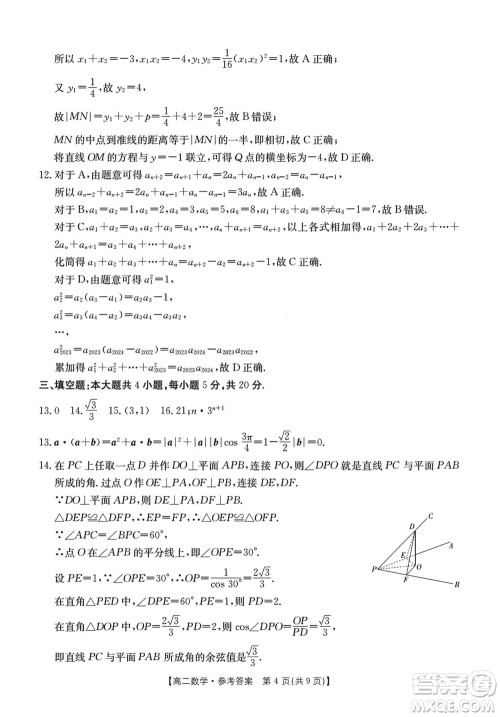 所以 x₁+x₂=−3,x₁x₂=−4,y₁y₂=1/16(x₁x₂)²=1,故 A 正确;
又 y₁=1/4,
故|MN|=y₁+y₂+2=1/4+4+2=25/4,故 B 错误;
MN 的中点到准线的距离等于|MN|的一半,即相切,故 C 正确;
将直线 OM 的方程与 y=−1 联立,可得 Q 点的横坐标为 4,故 D 正确.
12. 对于 A,由题意可得 aₙ₊₂=aₙ+aₙ₊₁,aₙ=aₙ₋₁+aₙ₋₂,
所以 aₙ₋₂+aₙ₊₂=aₙ₋₂+aₙ+aₙ₊₁=aₙ₋₂+aₙ+aₙ+aₙ₋₁=3aₙ,故 A 正确.
对于 B,a₁=a₂=1,a₃=2,a₄=3,a₅=5,a₆=8≠a₅+2,故 B 错误.
对于 C,由题意可得 a₃=a₂+a₁,a₄=a₃+a₂,…,aₙ₊₂=aₙ₊₁+aₙ,以上各式相加得 a₃+a₄+…+aₙ₊₂=
2aₙ+aₙ₊₁+a₁+…+aₙ₋₁,
化简得 a₁+a₂+a₃+…+aₙ=aₙ₊₂−1,故 C 正确.
对于 D,由题意可得 a₁²=1,
a₂²=a₂(a₃−a₁)=a₂a₃−a₂a₁,
a₃²=a₃(a₄−a₂)=a₃a₄−a₃a₂,
…,
a₂₀₂₃²=a₂₀₂₃(a₂₀₂₄−a₂₀₂₂)=a₂₀₂₃a₂₀₂₄−a₂₀₂₂a₂₀₂₃,
累加得 a₁²+a₂²+a₃²+…+a₂₀₂₃²=a₂₀₂₃a₂₀₂₄,故 D 正确.
三、填空题:本大题共 4 小题,每小题 5 分,共 20 分.
13. 0 14. √3/3 15. (3,1) 16. 21;n·3ⁿ⁺¹
13. a·(a+b)=a²+a·b=|a|²+|a||b|cos 3π/4=1−√2/2|b|=0.
14. 在 PC 上任取一点 D 并作 DO⊥平面 APB,连接 PO,则∠DPO 就是直线 PC 与平面 PAB
所成的角. 过点 O 作 OE⊥PA,OF⊥PB,连接 DE,DF.
∵DO⊥平面 APB,则 DE⊥PA,DF⊥PB.
△DEP≌△DFP,∴EP=FP,∴△OEP≌△OFP.
∵∠APC=∠BPC=60°,
∴点 O 在∠APB 的平分线上,即∠OPE=30°.
设 PE=1,∵∠OPE=30°,∴OP=1/cos 30°=2√3/3.
在直角△PED 中,∠DPE=60°,PE=1,则 PD=2.
在直角△DOP 中,OP=2√3/3,PD=2. cos∠DPO=OP/PD=√3/3,
即直线 PC 与平面 PAB 所成角的余弦值是√3/3.
C
D
A
E
O
P
F
B
【高二数学·参考答案 第 4 页(共 9 页)】